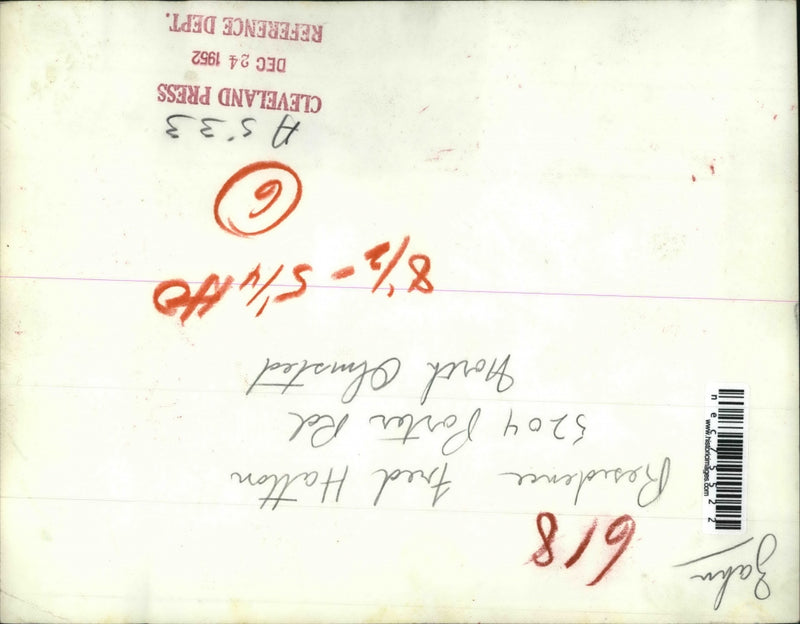 Zahn
618
Residence Fred Hatton
5204 Porter Rd
North Olmsted
8 1/2 - 5 1/4 HO
6
A 533
CLEVELAND PRESS
DEC 24 1952
REFERENCE DEPT.
www.historicimages.com